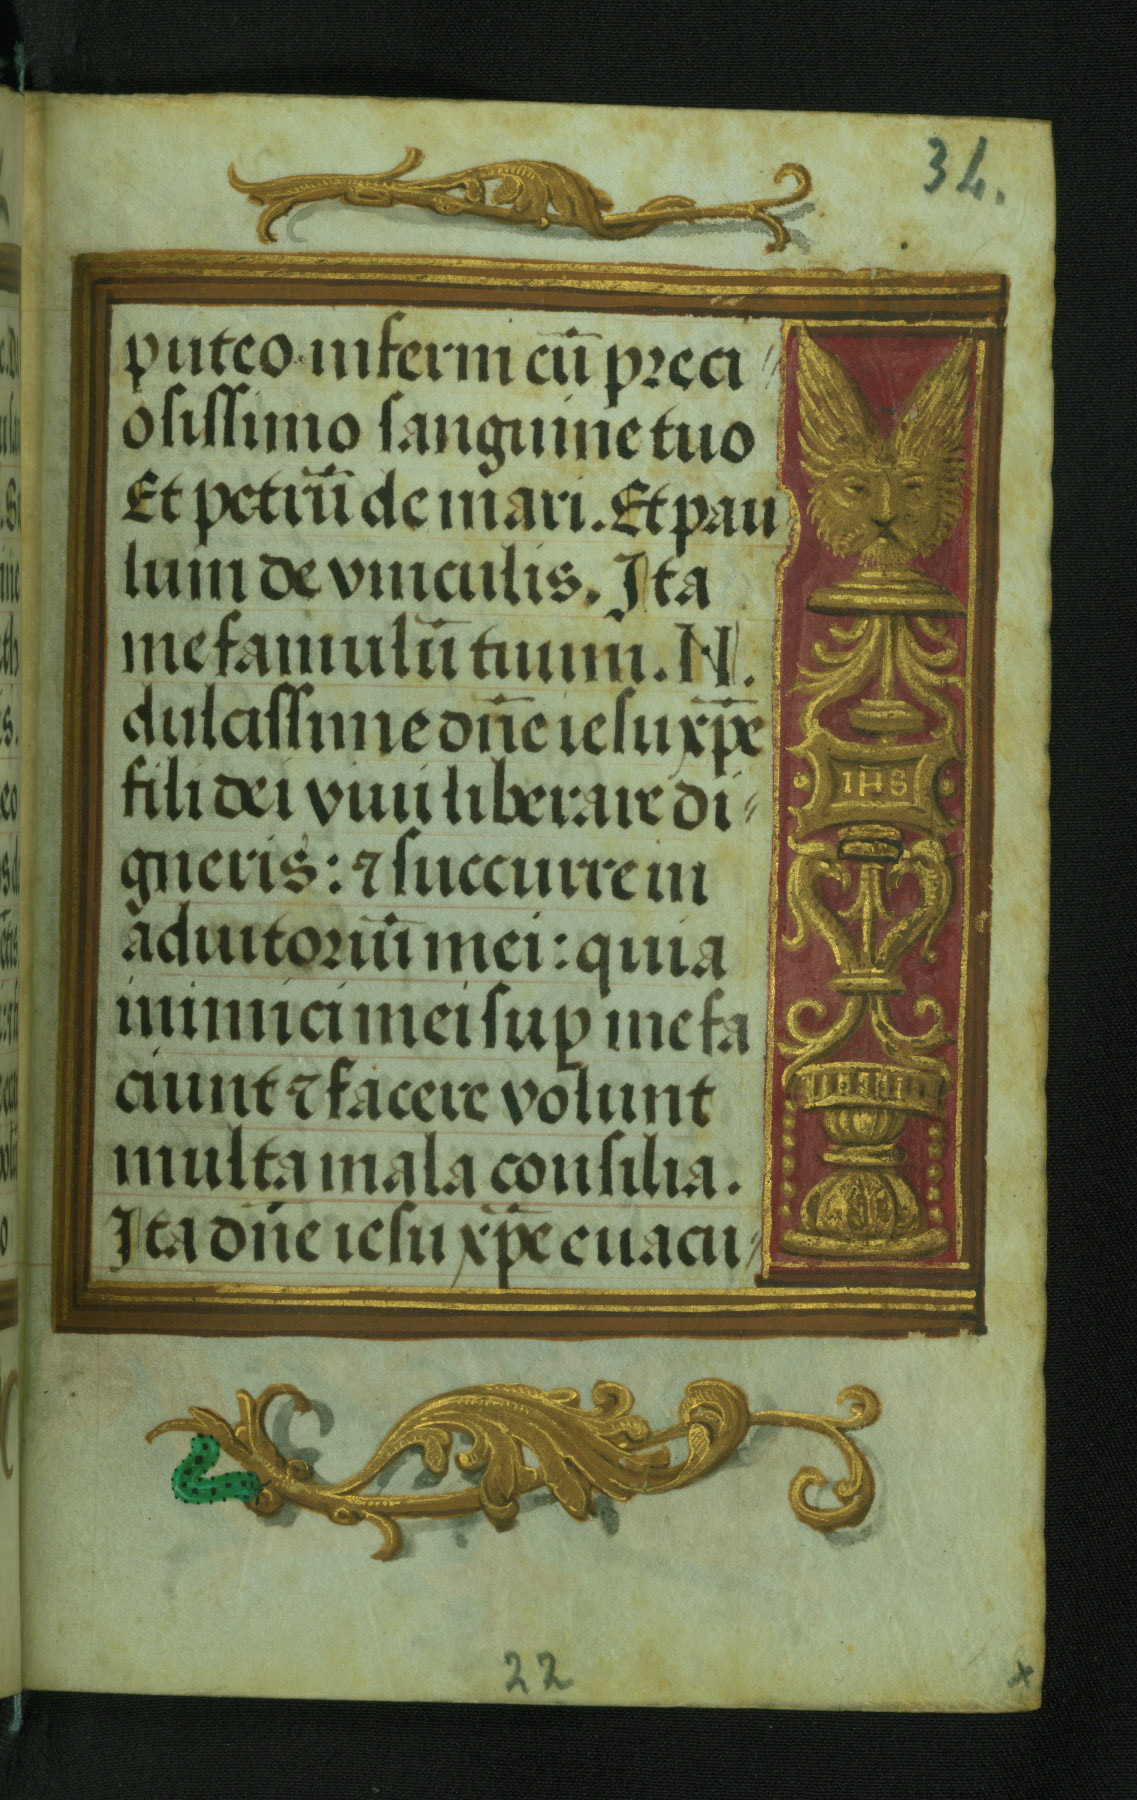 34.
puteo inferni cū preci
osissimo sanguine tuo
Et petrū de mari. Et pau
lum de vinculis. Ita
me famulū tuum. N.
dulcissime dn̄e iesu xp̄e
fili dei viui liberare di
gneris: ⁊ succurre in
adiutoriū mei: quia
inimici mei suꝑ me fa
ciunt ⁊ facere volunt
multa mala consilia.
Ita dn̄e iesu xp̄e euacu
IHS
22
x